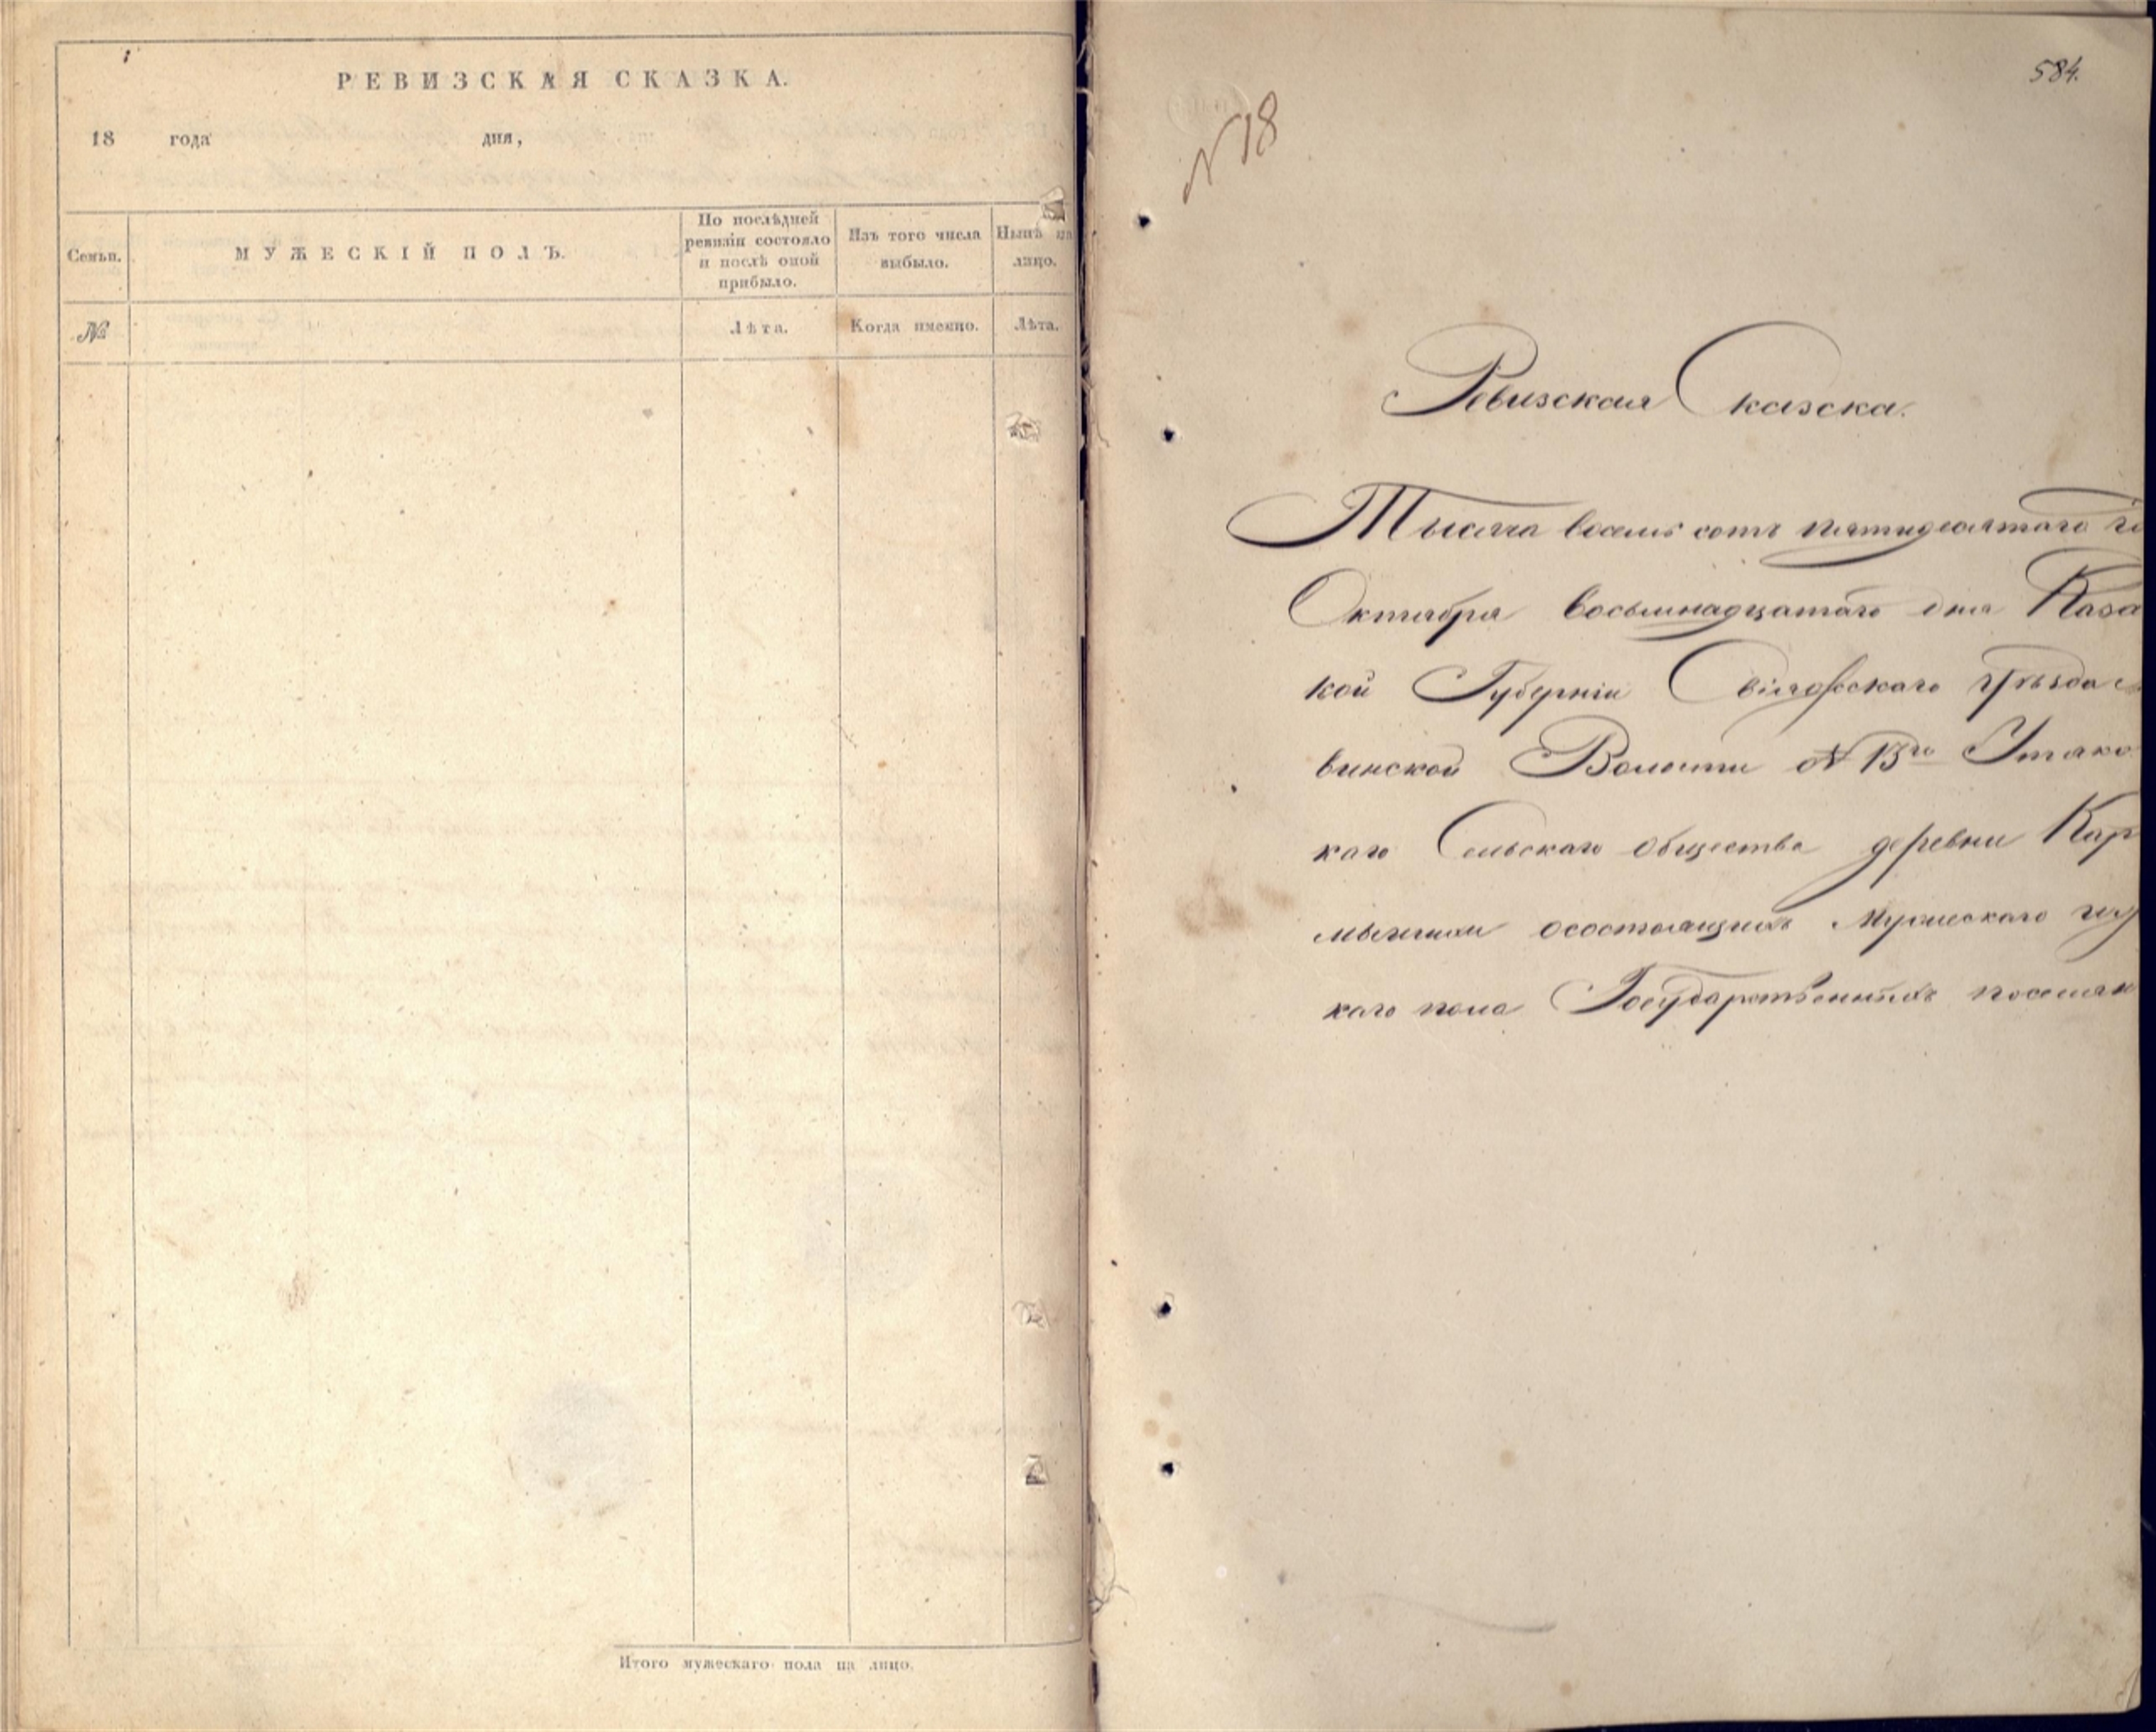 РЕВИЗСКАЯ СКАЗКА.
18 года дня,
Семьи.
МУЖЕСКІЙ ПОЛЪ.
По послѣдней
ревизіи состояло
и послѣ оной
прибыло.
Изъ того числа
выбыло.
Нынѣ на
лицо.
№
Лѣта.
Когда именно.
Лѣта.
Итого мужескаго пола на лицо.
584.
N 18
Ревизская Сказка.
Тысяча восемь сотъ пятидесятаго го
Октября восьмнадцатаго дня Каза
кой Губерніи Свіяжскаго уѣзда
винской Волости N 13го Утяко
каго Сельскаго общества деревни Кар
мышихи осостоящихъ Мужескаго и
каго пола Государственныхъ поселян